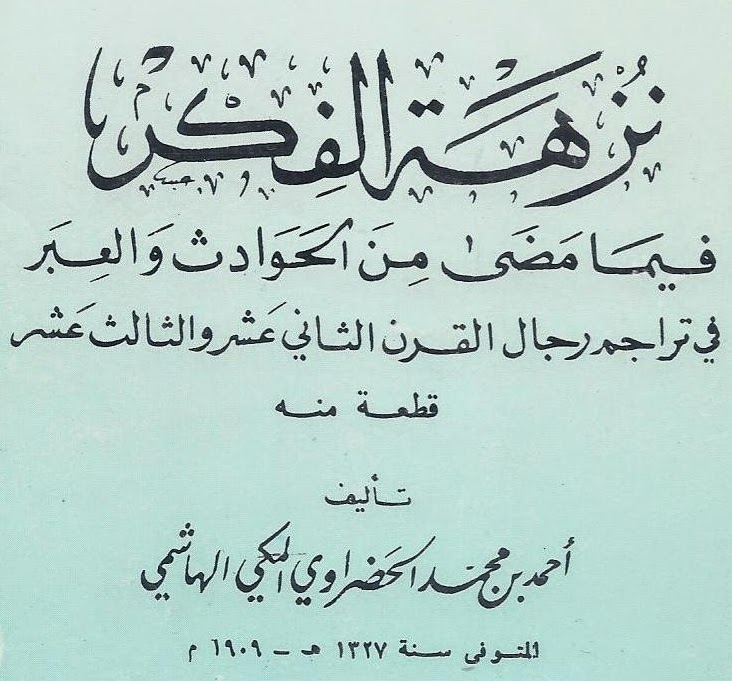 نُزهَة الفِكْر
فيمَا مَضَىٰ مِنَ الحَوَادث وَالعِبَر
في تراجم رجال القرن الثاني عَشر والثالث عَشر
قطعة منه
تأليف
أحمد بن محمّد الحَضراوي المكي الهاشمي
المتوفى سنة ١٣٢٧ هـ - ١٩٠٩ م